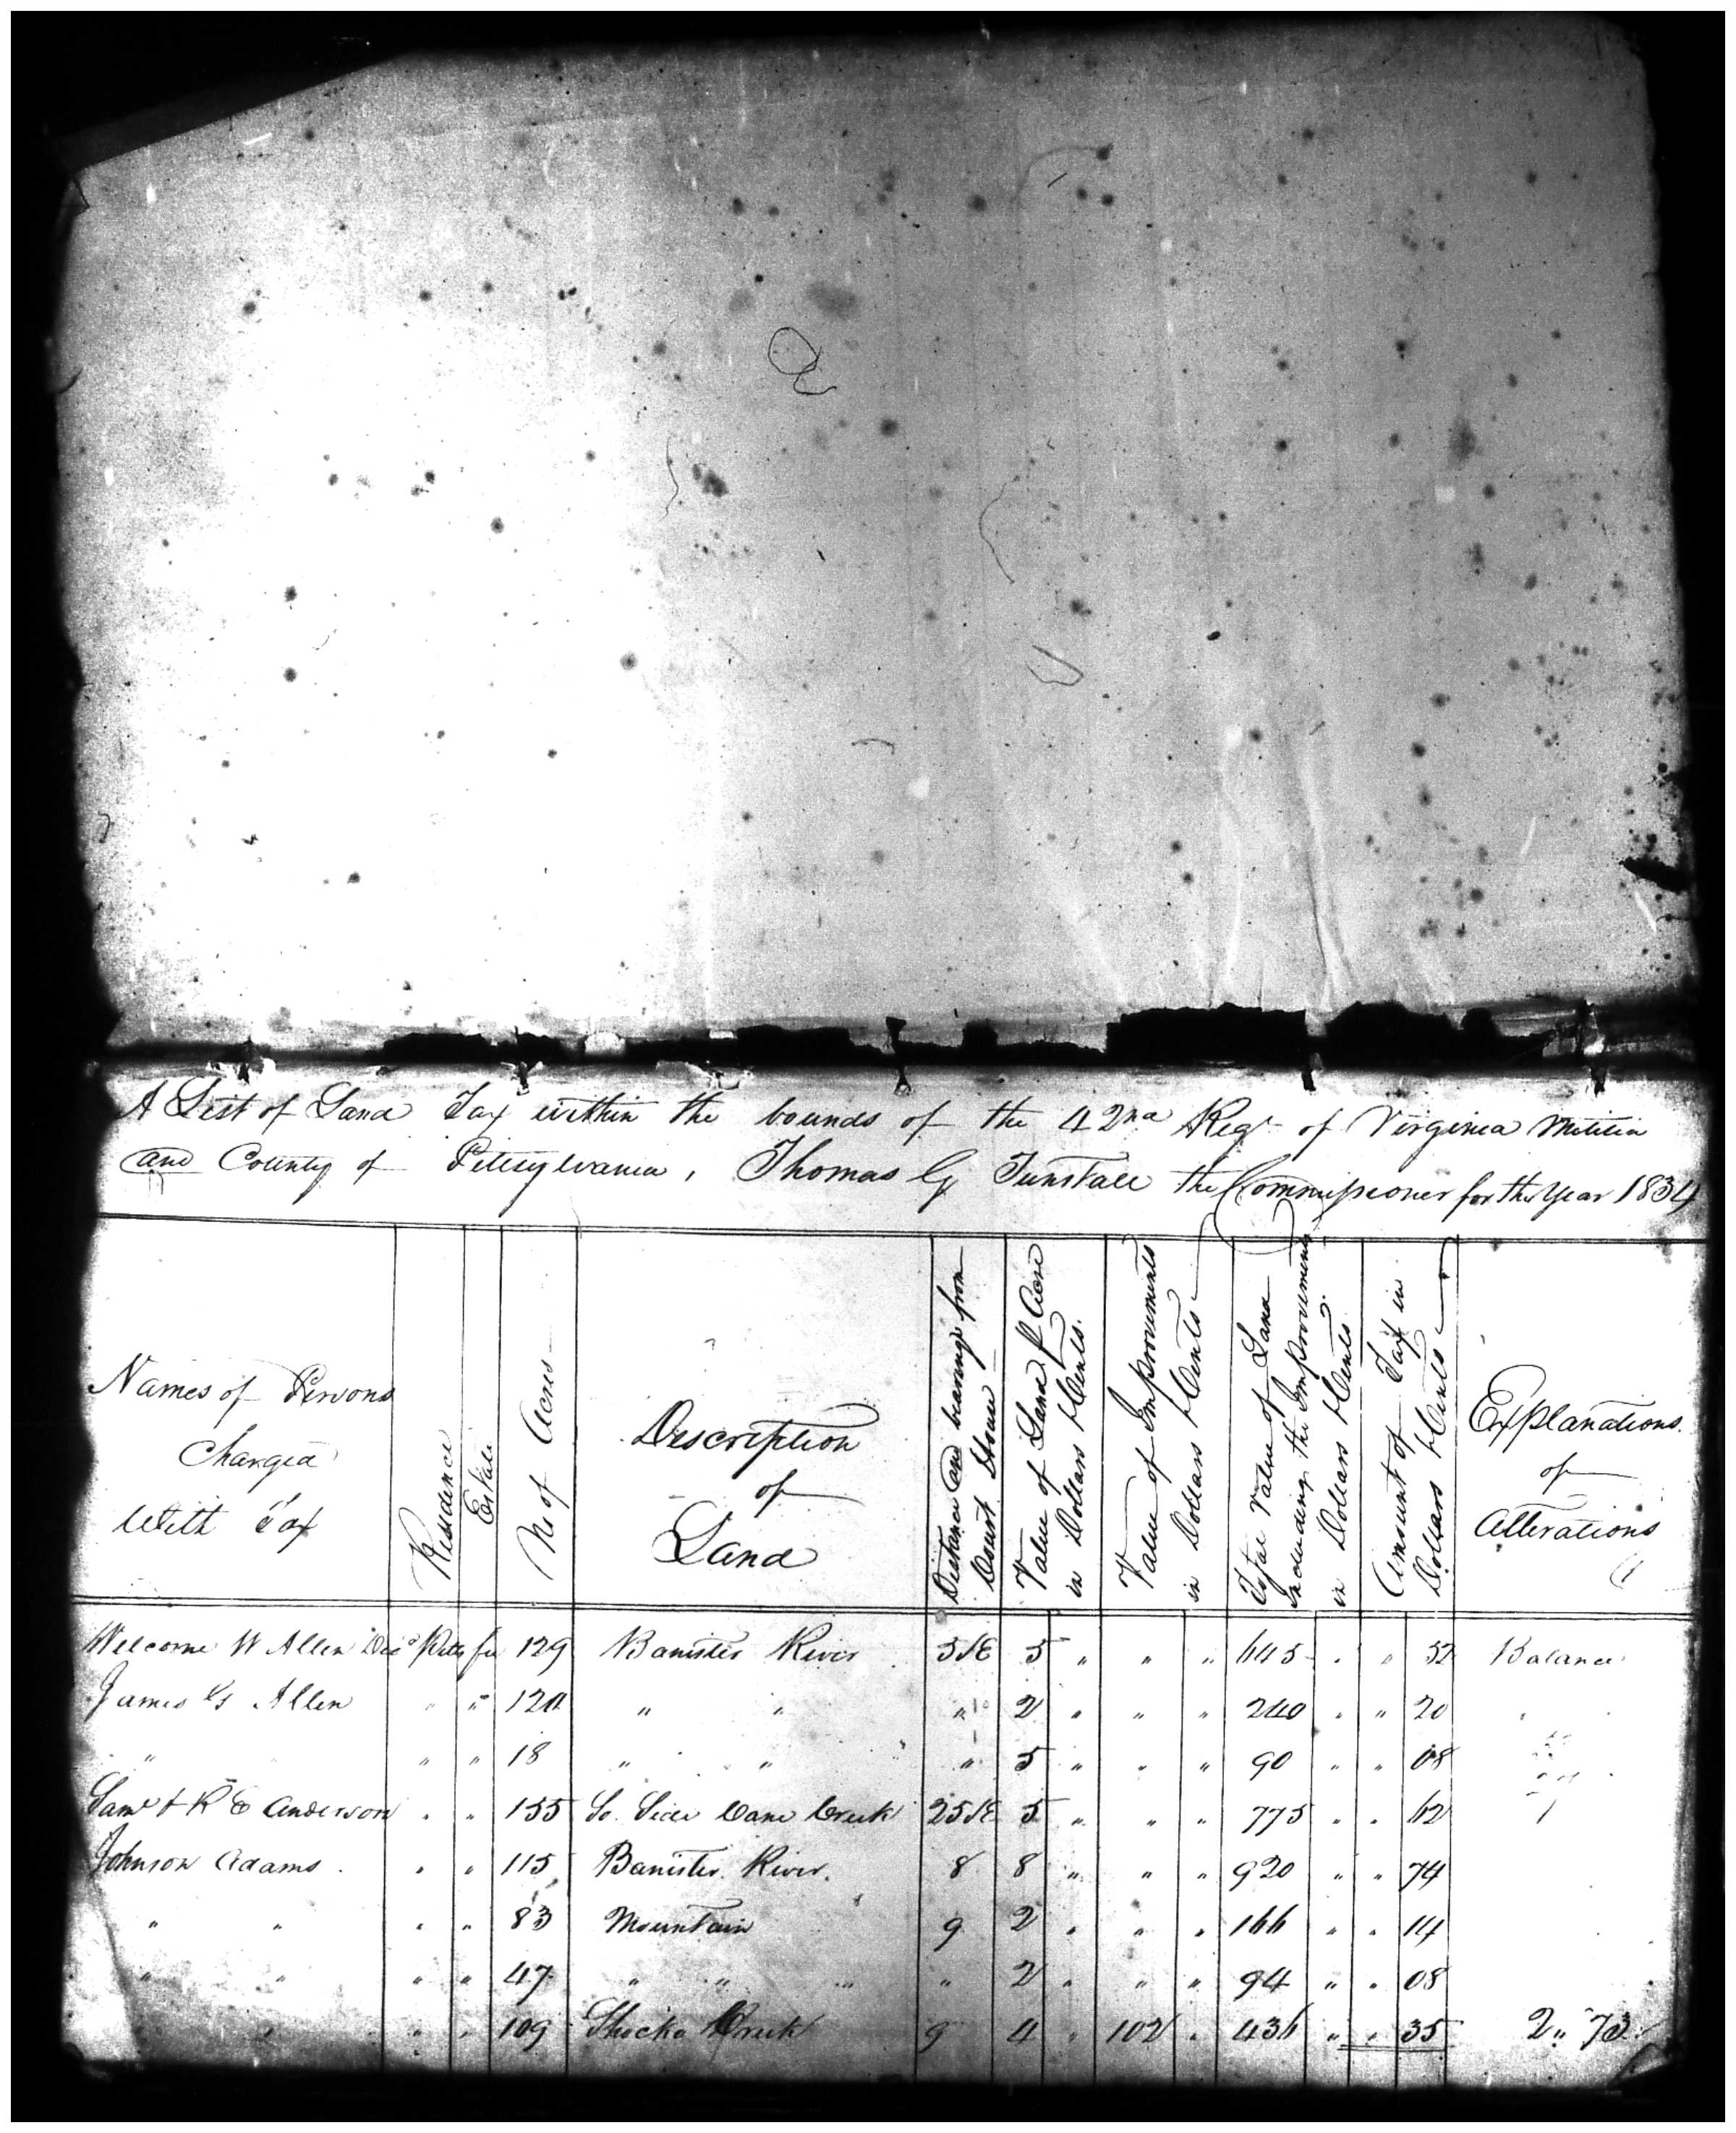 A List of Land Tax within the bounds of the 42nd Regt of Virginia Militia
and County of Pittsylvania, Thomas G Tunstall the Commissioner for the Year 1834
Names of Persons Charged With Tax
Residence
Estate
No of Acres
Description of Land
Distance and bearings from Court House
Value of Land P Acre in Dollars & Cents.
Value of Improvements in Dollars & Cents
Total Value of Land Including the Improvements in Dollars & Cents
Amount of Tax in Dollars & Cents
Explanations of Alterations
Welcome W Allen Decd Pitts fee 129 Banister River 5 NE 5 " " " 645 " " 52 Balance
James G Allen " " 120 " " " 2 " " " 240 " " 20
" " " 18 " " " 5 " " " 90 " " 08
Saml & R E Anderson " " 155 So. Side Cane Creek 25 NE 5 " " " 775 " " 62
Johnson Adams " " 115 Banister River. 8 8 " " " 920 " " 74
" " " " 83 Mountain 9 2 " " " 166 " " 14
" " " " 47 " " " " 2 " " " 94 " " 08
" " " 109 Shocko Creek 9 4 " 102 " 436 " " 35 2 " 73